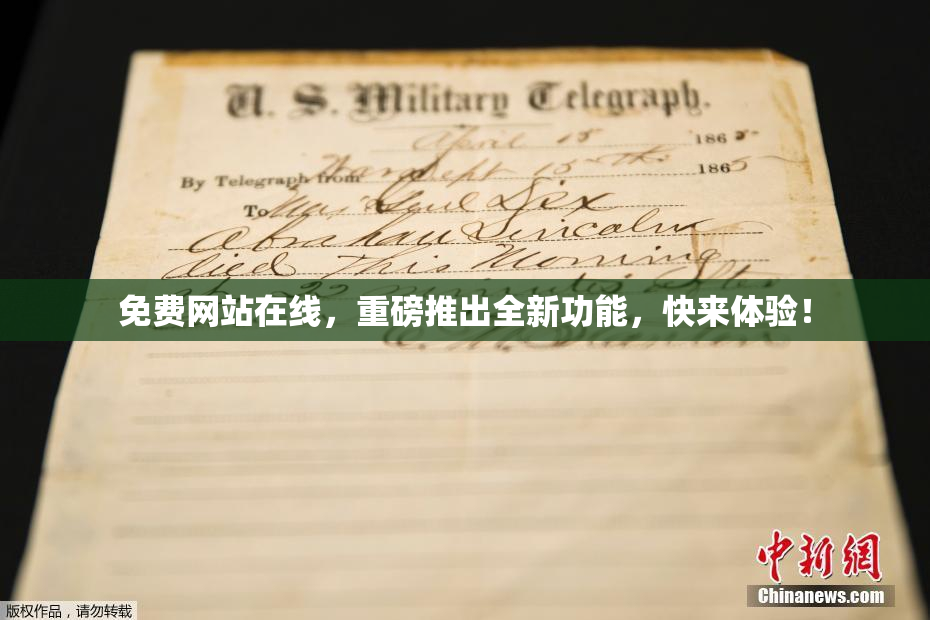 U. S. Military Telegraph.
April 15 1865
By Telegraph from War Dept 15th 1865
To Maj Genl Dix
Abraham Lincoln
died This Morning
at 22 minutes after
免费网站在线，重磅推出全新功能，快来体验！
E. M. Stanton
中新網
Chinanews.com
版权作品，请勿转载